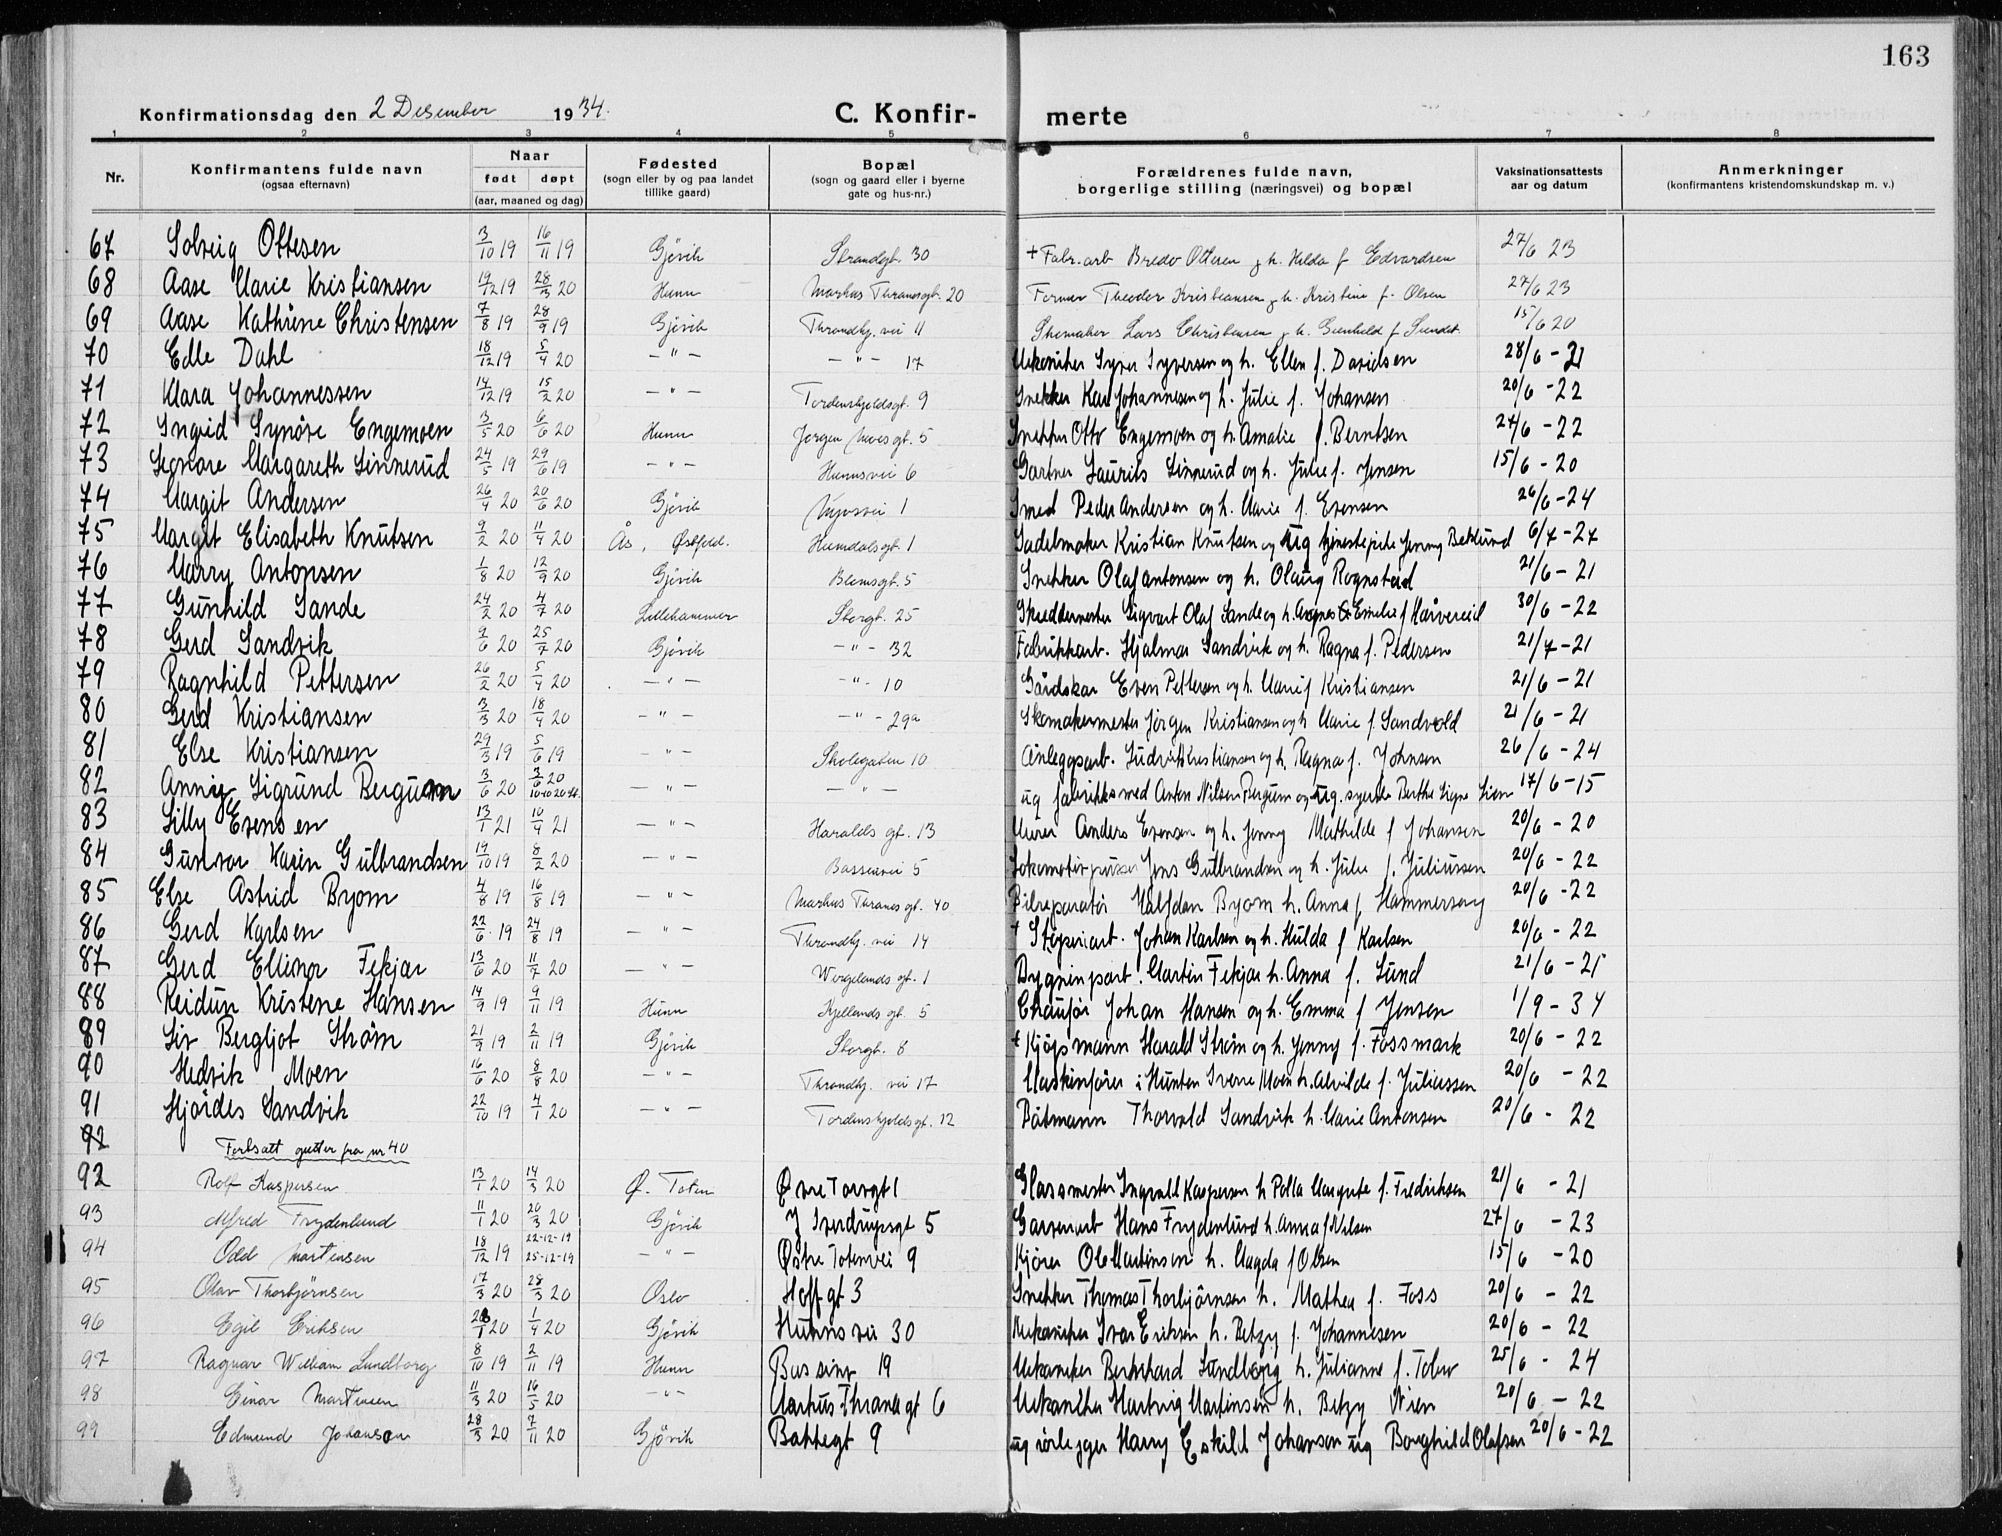 163
Konfirmationsdag den 2 Desember 1934. C. Konfirmerte
1 2 3 4 5 6 7 8
Nr. Konfirmantens fulde navn (ogsaa efternavn) Naar født døpt (aar, maaned og dag) Fødested (sogn eller by og paa landet tillike gaard) Bopæl (sogn og gaard eller i byerne gate og hus-nr.) Forældrenes fulde navn, borgerlige stilling (næringsvei) og bopæl Vaksinationsattests aar og datum Anmerkninger (konfirmantens kristendomskundskap m. v.)
67 Solveig Ottesen 3/10 19 16/11 19 Gjövik Strandgt. 30 + Fabr. arb Bredo Ottesen g h. Hilda f Edvardsen 27/6 23
68 Aase Marie Kristiansen 19/12 19 28/3 20 Hunn Markus Thranesgt. 20 Former Theodor Kristiansen g h. Kristine f. Olsen 27/6 23
69 Aase Kathrine Christensen 7/8 19 28/9 19 Gjövik Throndhj. vei 11 Skomaker Lars Christensen g h. Gunhild f Sundet 15/6 20
70 Edle Dahl 18/12 19 5/4 20 — " — — " — 17 Mekaniker Syver Syversen og h. Ellen f. Davidsen 28/6 - 21
71 Klara Johannessen 14/12 19 15/2 20 — " — Tordenskjoldsgt. 9 Snekker Karl Johannesen og h. Julie f. Johansen 20/6 - 22
72 Ingrid Synöve Engemoen 3/5 20 6/6 20 Hunn Jørgen Moesgt. 5 Snekker Otto Engemoen og h. Amalie f. Berntsen 27/6 - 22
73 Leonore Margareth Linnerud 24/5 19 29/6 19 — " — Hunnsvei 6 Gartner Laurits Linnerud og h. Julie f. Jensen 15/6 - 20
74 Margit Andersen 26/4 20 20/6 20 Gjövik 1 Smed Peder Andersen og h. Marie f. Evensen 26/6 - 24
75 Margit Elisabeth Knutsen 9/2 20 11/4 20 Ås, Østfold. Hundalsgt. 1 Sadelmaker Kristian Knutsen og ug tjenestepike Jenny Beklund 6/7 - 27
76 Marry Antonsen 1/8 20 12/9 20 Gjövik Blomsgt. 5 Snekker Olaf Antonsen og h. Olaug Rognstad 21/6 - 21
77 Gunhild Sande 24/2 20 4/7 20 Lillehammer Storgt. 25 Skreddermester Sigvart Olaf Sande og h. Agnes Emelie f 30/6 - 22
78 Gerd Sandvik 9/6 20 25/7 20 Gjövik — " — 32 Fabrikkarb. Hjalmar Sandvik og h. Ragna f. Pedersen 21/7 - 21
79 Ragnhild Pettersen 26/2 20 5/4 20 — " — — " - 10 Gårdskar Even Pettersen og h. Marie f Kristiansen 21/6 - 21
80 Gerd Kristiansen 3/3 20 18/4 20 — " — — " — 29a Skomakermester Jörgen Kristiansen og h Marie f. Sandvold 21/6 - 21
81 Else Kristiansen 29/3 19 5/6 19 — " — Skolegaten 10 Anleggsarb. Ludvik Kristiansen og h. Ragna f. Johnsen 26/6 - 24
82 Annie Sigrund Bergum 3/6 20 — " — — " — ug fabrikksmed Anton Nilsen Bergum og ug. syerske Berthe Signe Lien 17/6 - 15
83 Lilly Evensen 13/1 21 10/4 21 — " — Haralds gt. 13 Murer Anders Evensen og h. Jenny Mathilde f Johansen 20/6 - 20
84 Gunvor Karin Gulbrandsen 19/10 19 8/2 20 — " — Bassenvei 5 Lokomotivpusser Jens Gulbrandsen og h. Julie f. Juliussen 20/6 - 22
85 Else Astrid Byom 4/8 19 16/8 19 — " — Markus Thranes gt. 40 Bilreparatör Halfdan Byom h. Anna f. Hammerseng 20/6 - 22
86 Gerd Karlsen 22/6 19 24/8 19 — " — Throndhj. vei 14 + Stöperiarb. Johan Karlsen og h. Hulda f Karlsen 20/6 - 22
87 Gerd Ellinor Fekjar 13/6 20 11/7 20 — " — Wergelands gt. 1 Bygninsarb. Martin Fekjar h. Anna f. Lund 21/6 - 21
88 Reidun Kristene Hansen 14/9 19 9/11 19 Hunn Kjellands gt. 5 Chauför Johan Hansen og h. Emma f Jensen 1/9 - 34
89 Liv Bergljot Ström 21/9 19 2/11 19 Gjövik Storgt. 8 + Kjöpmann Harald Ström og h. Jenny f. Fossmark 20/6 - 22
90 Hedvik Moen 16/6 20 8/8 20 — " — Throndhj. vei 17 Maskinförer i Hunton Sverre Moen h. Alvilde f. Juliussen 20/6 - 22
91 Hjördes Sandvik 22/10 19 4/1 20 — " — Tordenskjoldsgt. 12 Båtmann Thorvald Sandvik h. Marie Antonsen 20/6 - 22
92
Fortsatt gutter fra nr 40
92 Rolf Kaspersen 13/1 20 14/3 20 Ø. Toten Øvre Torvgt 1 Glassmester Ingvald Kaspersen h Polla Margrete f. Fredriksen 21/6 - 21
93 Alfred Frydenlund 11/1 20 20/3 20 Gjövik J Sverdrupsgt 5 Garveriarb Hans Frydenlund h. Anna f Nilsen 27/6 - 23
94 Odd Martinsen 18/12 19 22-12-19 25-12-19 — " — Østre Totenvei 9 Kjörer Ole Martinsen h. Magda f Olsen 15/6 - 20
95 Olav Thorbjörnsen 17/3 20 28/3 20 Oslo Hoff gt 3 Snekker Thomas Thorbjörnsen h. Mathea f. Foss 20/6 - 22
96 Egil Eriksen 1/4 20 Gjövik Hunnsvei 30 Mekaniker Ivar Eriksen h. Betzy f. Johannesen 20/6 - 22
97 Ragnar William Lundborg 8/10 19 2/11 19 Hunn 19 Mekaniker Bernhard Lundborg h. Julianne f. 25/6 - 24
98 Einar Martinsen 11/3 20 16/5 20 — " — Markus Thranes gt 6 Mekaniker Hartvig Martinsen h. Betzy Nien 20/6 - 22
99 Edmund Johanson 28/3 20 7/11 20 Gjövik Bakkegt 9 ug rörlegger Harry Eskild Johansen ug Borghild Olafsen 20/6 - 22